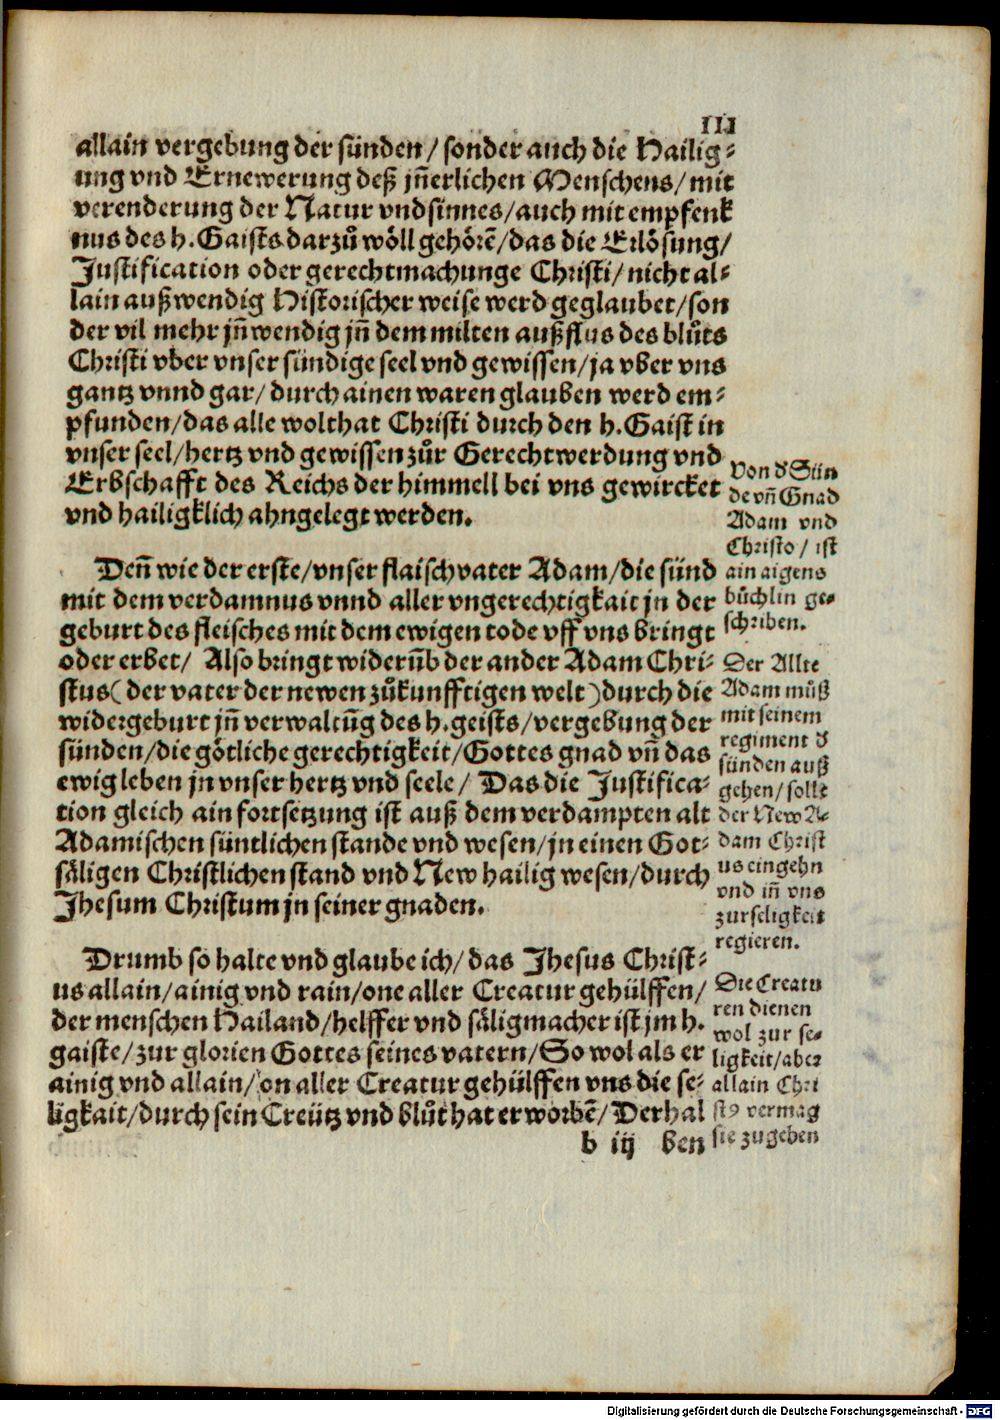 III
allain vergebung der sünden/ sonder auch die Hailig⸗
ung vnd Ernewerung deß jn̄erlichen Menschens/ mit
verenderung der Natur vnd sinnes/ auch mit empfenk
nus des h. Gaists darzů wöll gehörē/ das die Erlösung/
Justification oder gerechtmachunge Christi/ nicht al⸗
lain außwendig Historischer weise werd geglaubet/ son
der vil mehr jn̄wendig jn̄ dem milten außflus des blůts
Christi vber vnser sündige seel vnd gewissen/ ja vber vns
gantz vnnd gar/ durch ainen waren glauben werd em⸗
pfunden/ das alle wolthat Christi durch den h. Gaist in
vnser seel/ hertz vnd gewissen zůr Gerechtwerdung vnd
Erbschafft des Reichs der himmell bei vns gewircket
vnd hailigklich ahngelegt werden.
Von d Sün
de vn̄ Gnad
Adam vnd
Christo/ ist
ain aigens
büchlin ge⸗
schriben.
Den̄ wie der erste/ vnser flaischvater Adam/ die sünd
mit dem verdamnus vnnd aller vngerechtigkait jn der
geburt des fleisches mit dem ewigen tode vff vns bringt
oder erbet/ Also bringt widerūb der ander Adam Chri⸗
stus( der vater der newen zůkunfftigen welt) durch die
widergeburt jn̄ verwaltūg des h. geists/ vergebung der
sünden/ die götliche gerechtigkeit/ Gottes gnad vn̄ das
ewig leben jn vnser hertz vnd seele/ Das die Justifica⸗
tion gleich ain fortsetzung ist auß dem verdampten alt
Adamischen süntlichen stande vnd wesen/ jn einen Got⸗
säligen Christlichen stand vnd New hailig wesen/ durch
Jhesum Christum jn seiner gnaden.
Der Allte
Adam můß
mit seinem
regiment d
sünden auß
gehen/ sollt
der New A⸗
dam Christ
us eingehn
vnd in̄ vns
zur seligkeit
regieren.
Drumb so halte vnd glaube ich/ das Jhesus Christ⸗
us allain/ ainig vnd rain/ one aller Creatur gehülffen/
der menschen Hailand/ helffer vnd säligmacher ist jm h.
gaiste/ zur glorien Gottes seines vatern/ So wol als er
ainig vnd allain/ on aller Creatur gehülffen vns die se⸗
ligkait/ durch sein Creütz vnd blůt hat erworbē/ Derhal
b iij ben
Die Creatu
ren dienen
wol zur se⸗
ligkeit/ aber
allain Chri
stꝰ vermag
sie zugeben
Digitalisierung gefördert durch die Deutsche Forschungsgemeinschaft - DFG